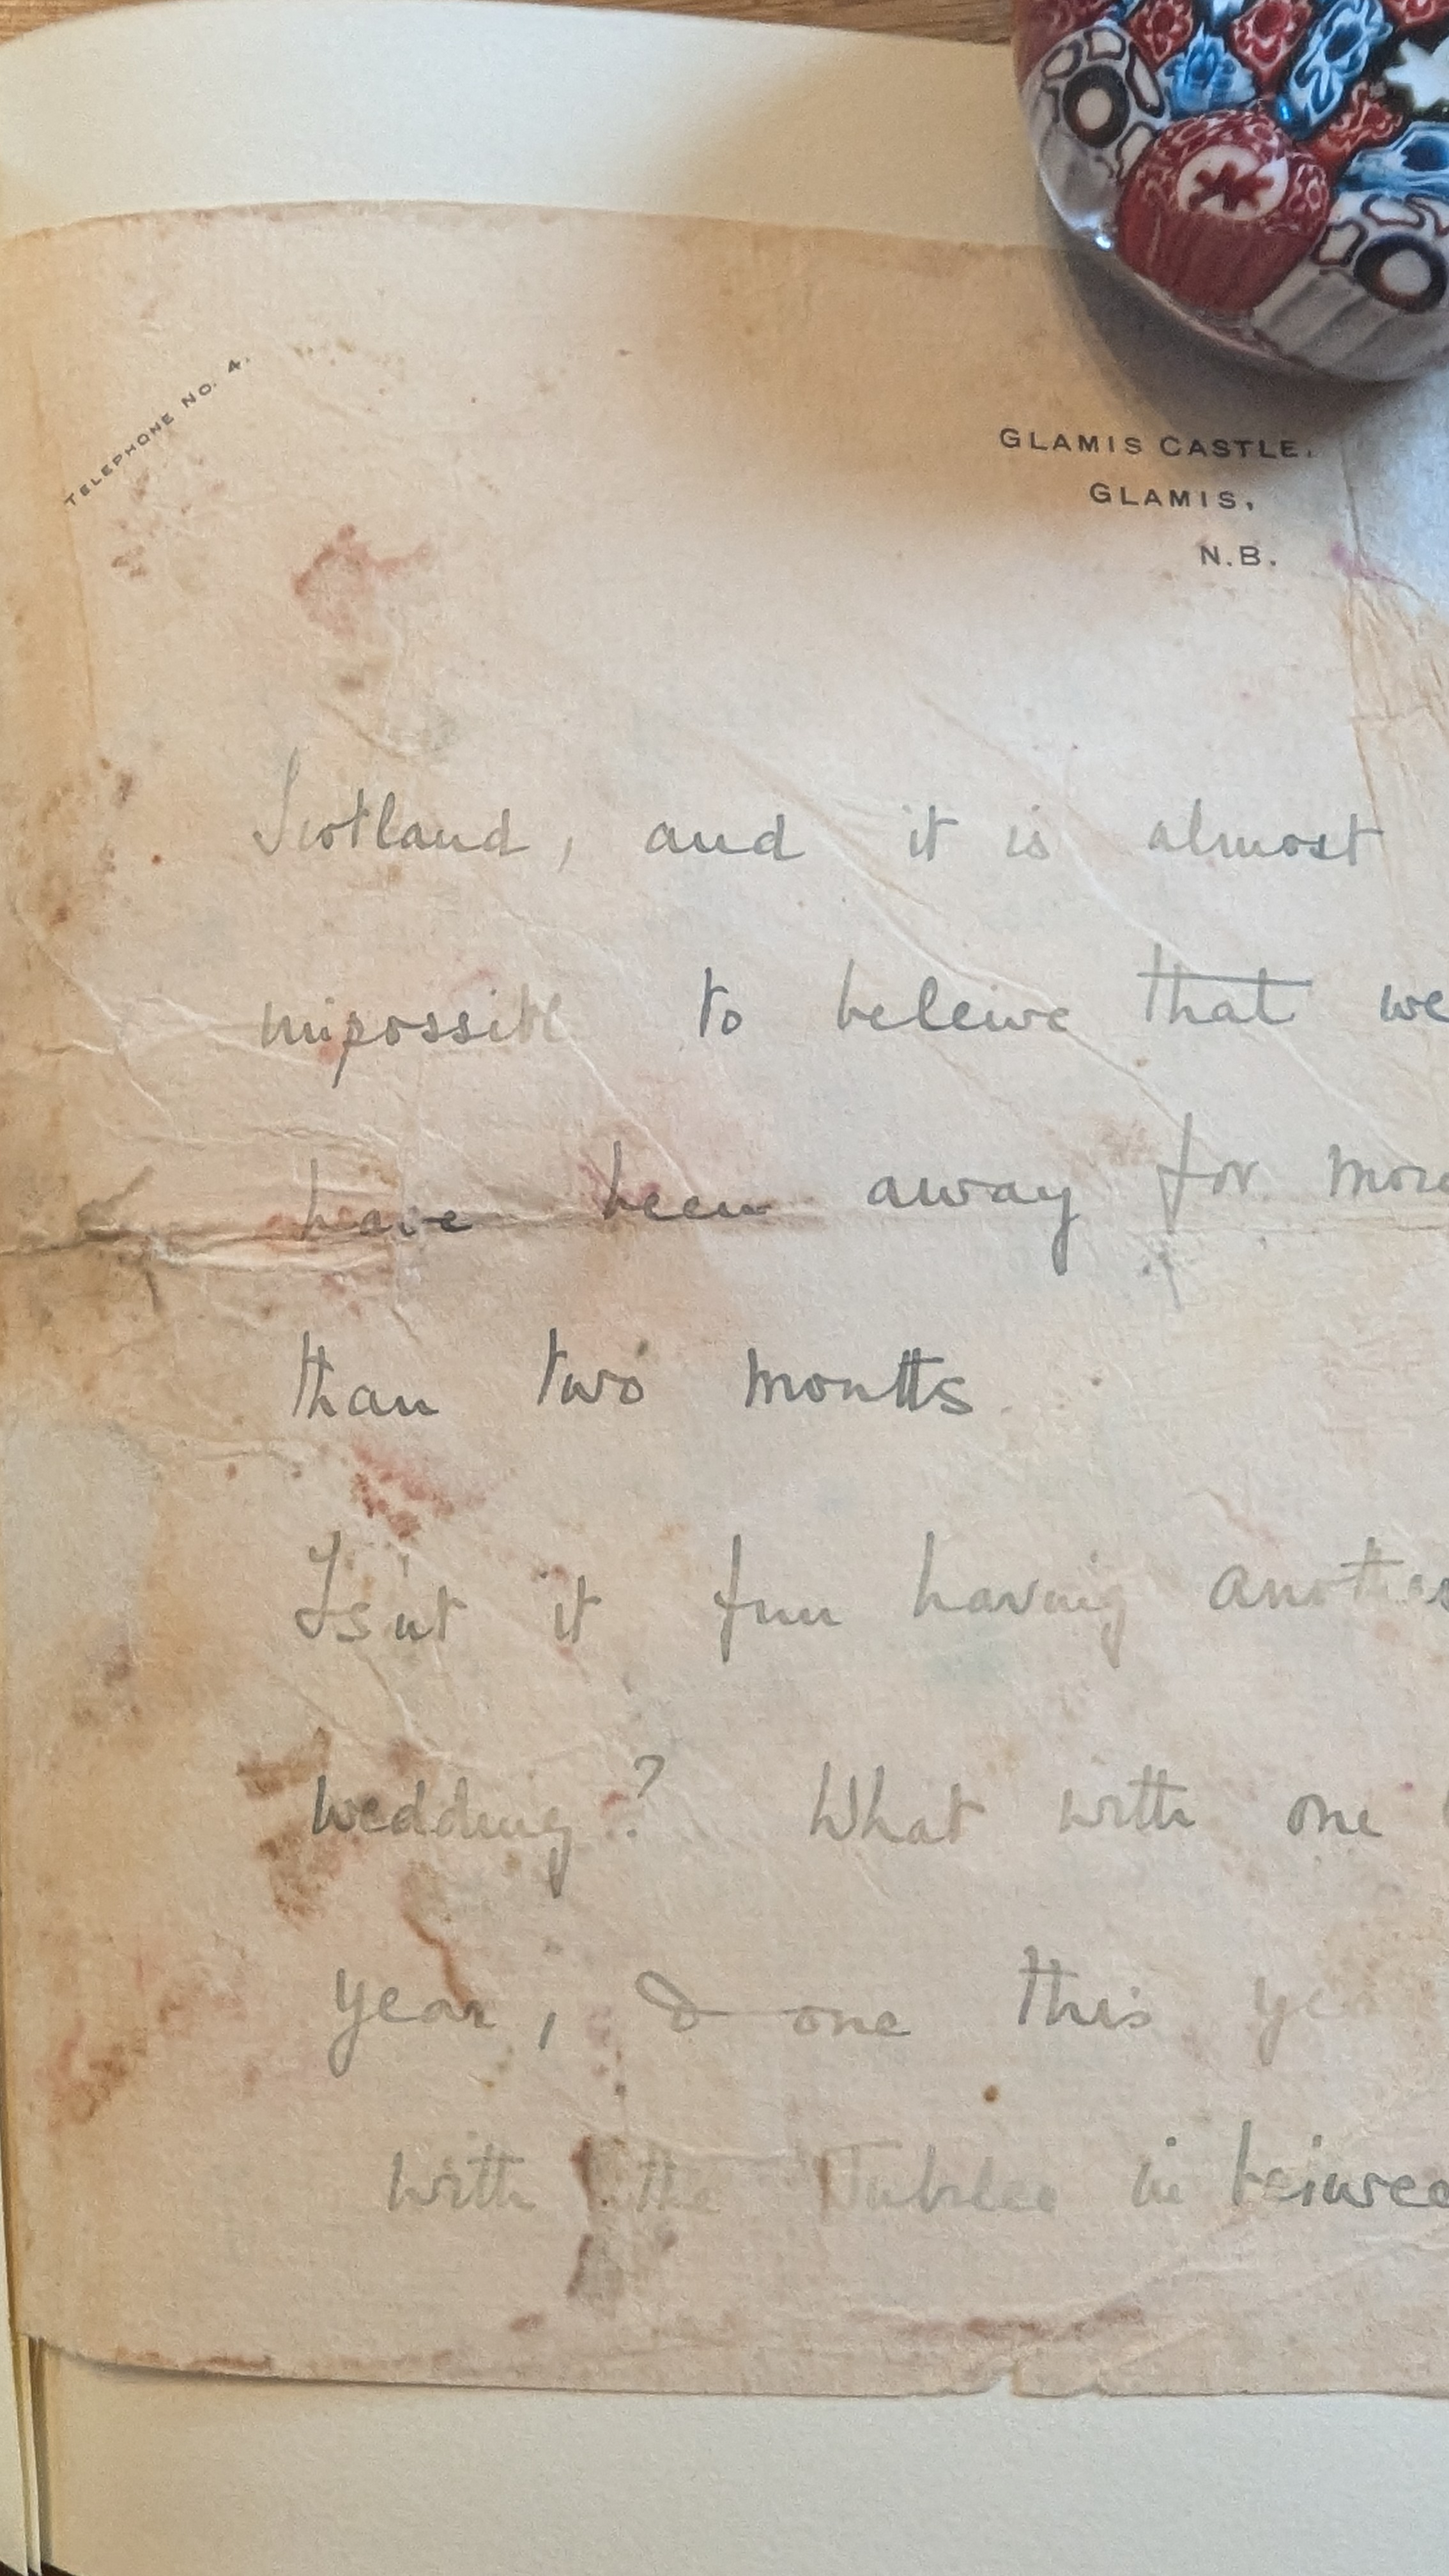 TELEPHONE NO. 4.
GLAMIS CASTLE,
GLAMIS,
N.B.
Scotland, and it is almost
impossible to beleive that we
have been away for more
than two months
Isn't it fun having another
wedding? What with one
year, & one this
with the Jubilee in